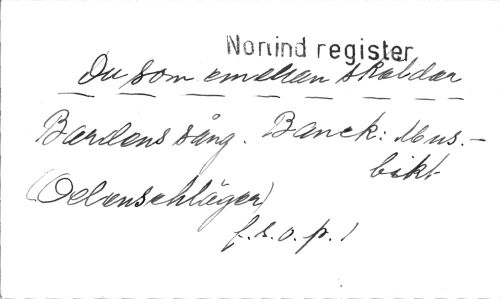 Norrind register
Du som emellan skaldar
Bardens sång. Banck: Mus.-
bikt
(Oelenschläger)
f.s.o.p. 1